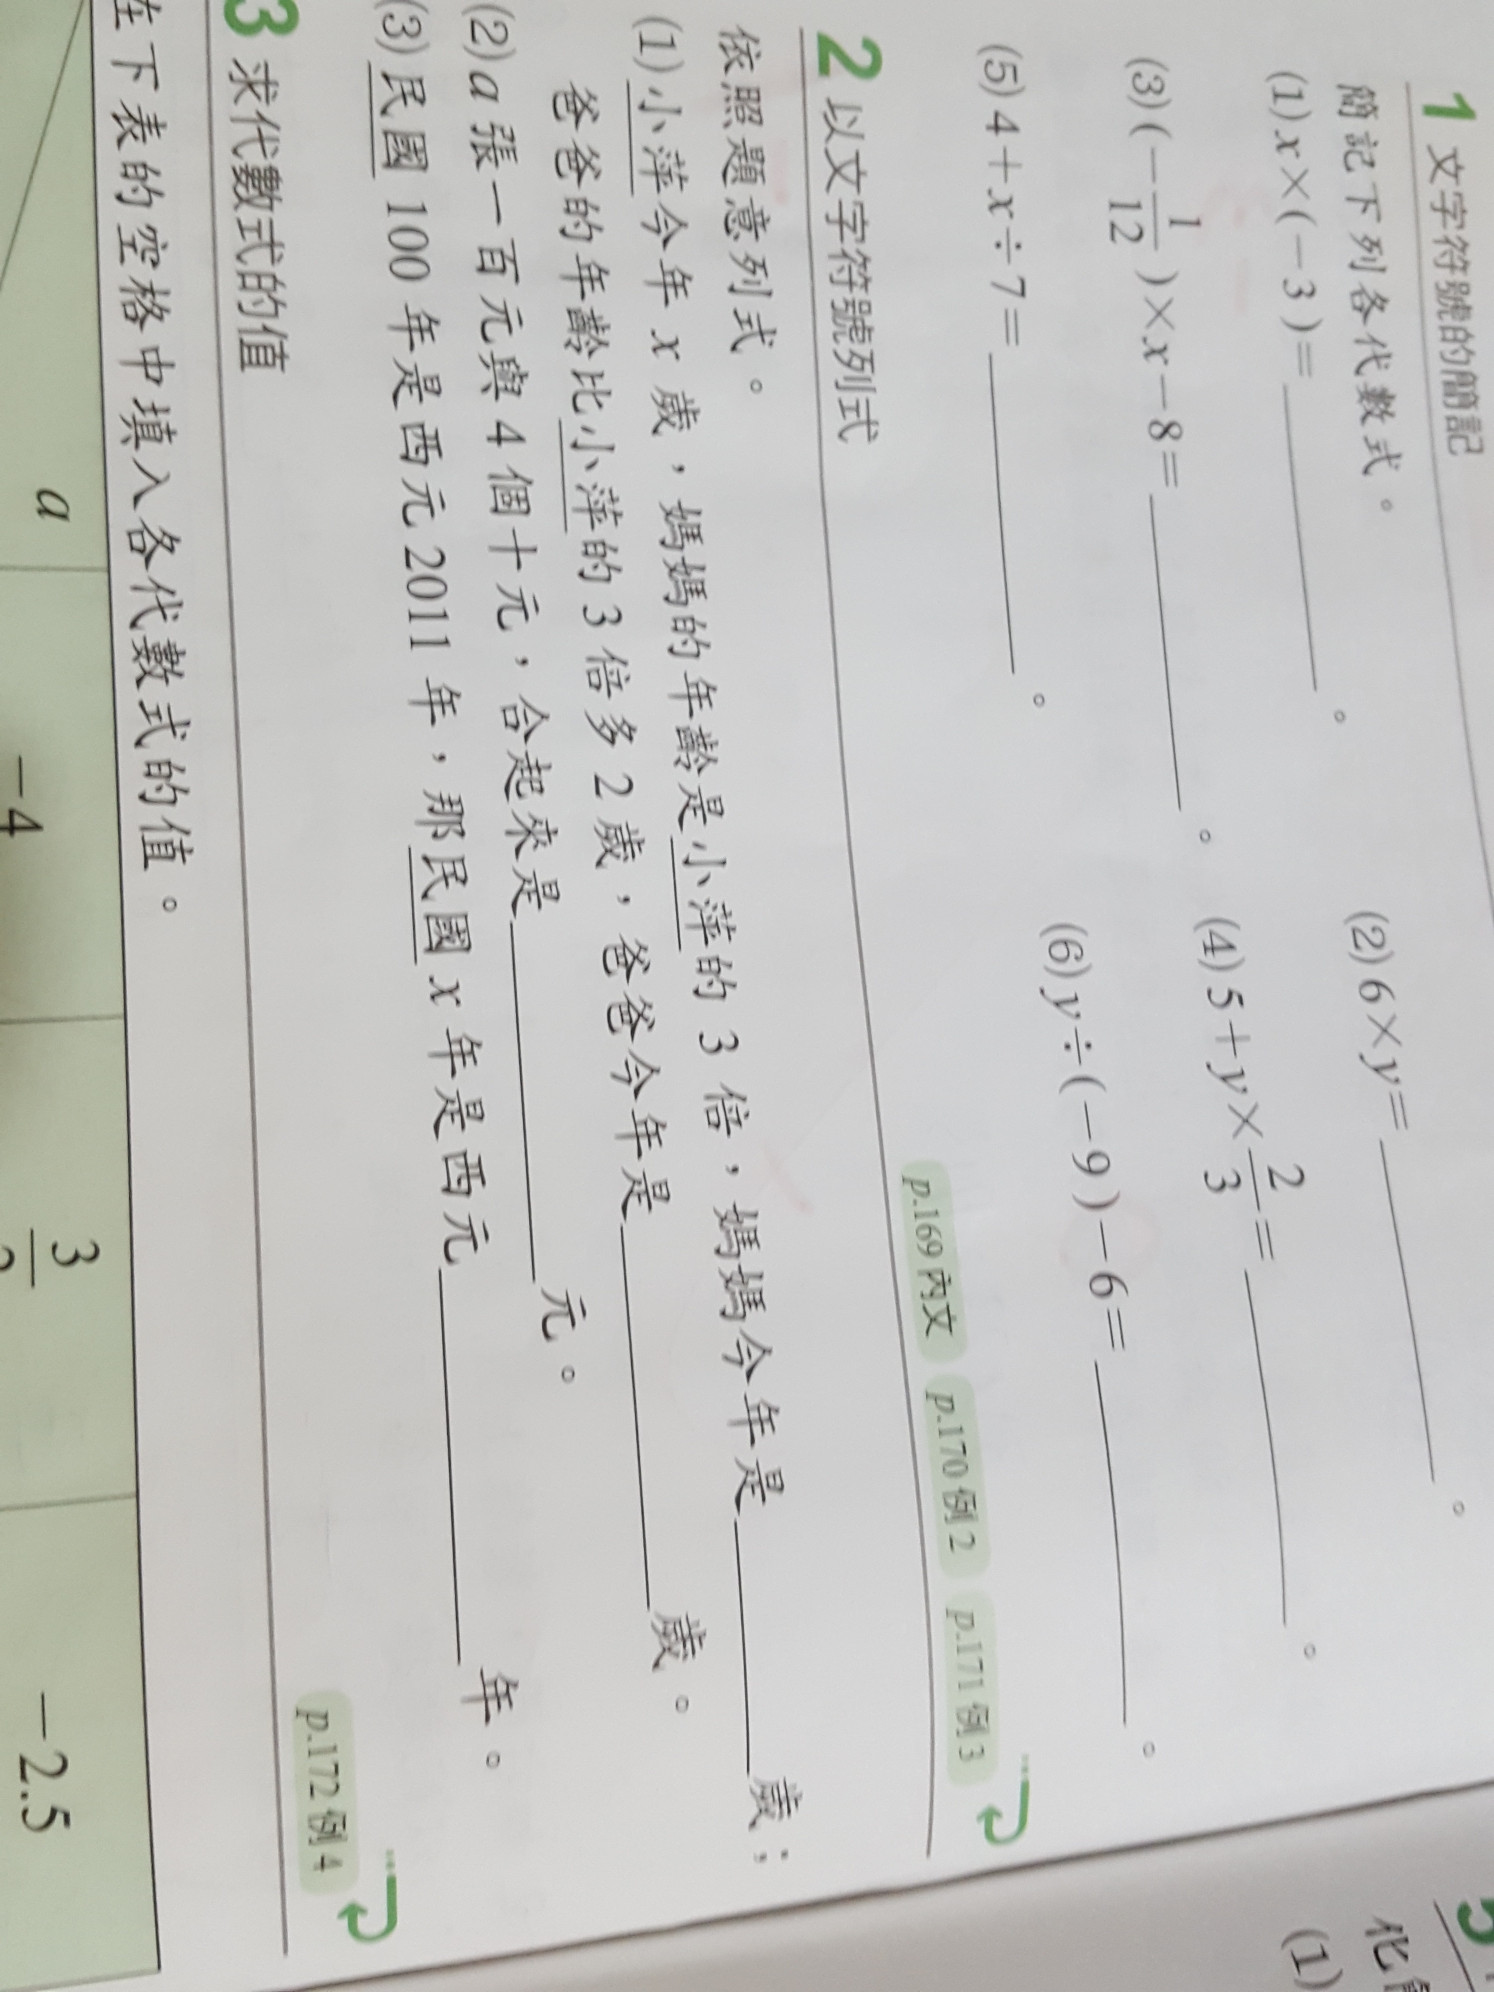 1 文字符號的簡記
簡記下列各代數式。
(1) x×(-3)=________。 (2) 6×y=________。
(3) (-1/12)×x-8=________。 (4) 5+y×2/3=________。
(5) 4+x÷7=________。 (6) y÷(-9)-6=________。
2 以文字符號列式 p.169 內文 p.170 例2 p.171 例3
依照題意列式。
(1) 小萍今年 x 歲，媽媽的年齡是小萍的 3 倍，媽媽今年是________歲；
爸爸的年齡比小萍的 3 倍多 2 歲，爸爸今年是________歲。
(2) a 張一百元與 4 個十元，合起來是________元。
(3) 民國 100 年是西元 2011 年，那民國 x 年是西元________年。
3 求代數式的值 p.172 例4
在下表的空格中填入各代數式的值。
a -4 3 -2.5
5
(1)